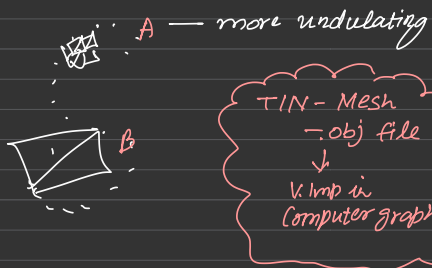 A — more undulating
B
TIN - Mesh
- .obj file
↓
V. Imp in
Computer graph